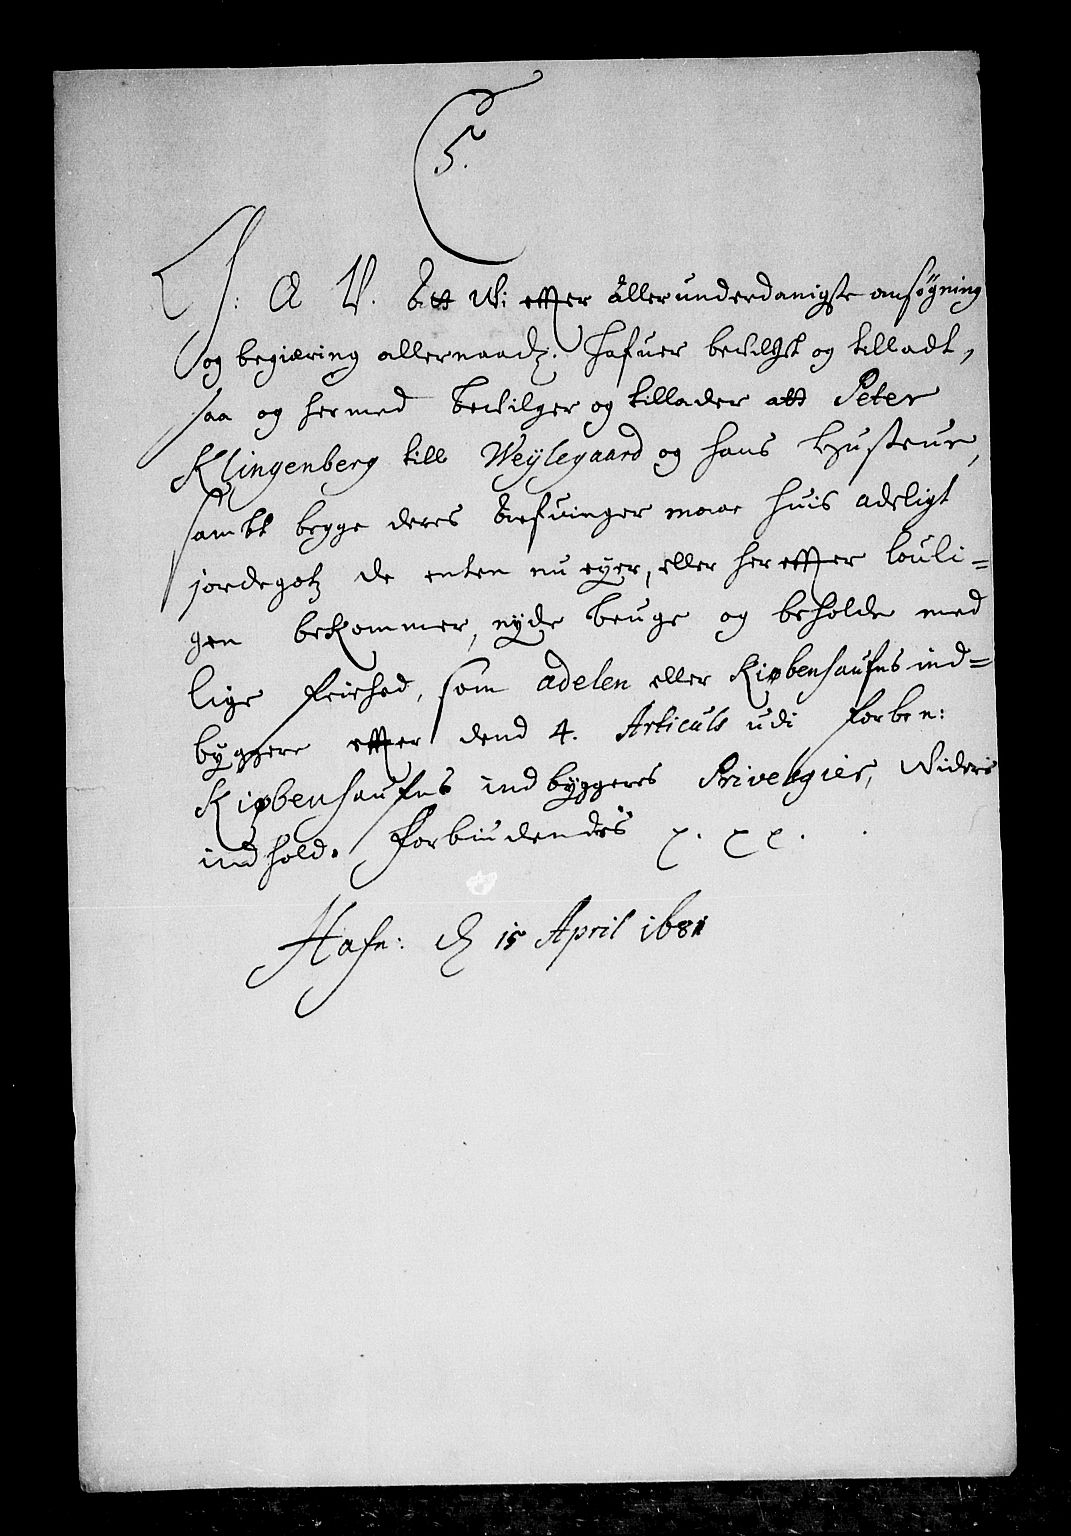 C 5.
G: A V. Att Wi effter allerunderdanigste ansøgning
og begiæring allernaadz. hafuer bevilget og tilladt,
saa og hermed bevilger og tillader att Peter
Klingenberg till Weylegaard og hans Hustrue,
sambt begge deres Arfvinger maae huis adeligt
jordegotz de enten nu eyer, eller hereffter louli=
gen bekommer, nyde bruge og beholde med
lige friehed, som adelen eller Kiøbenhaufns ind=
byggere effter dend 4. Articuls udi forben:
Kiøbenhaufns indbyggeres Privelegier, Videre
indhold. Forbiudendes p. p p.
Hafn: d 15 April 1681